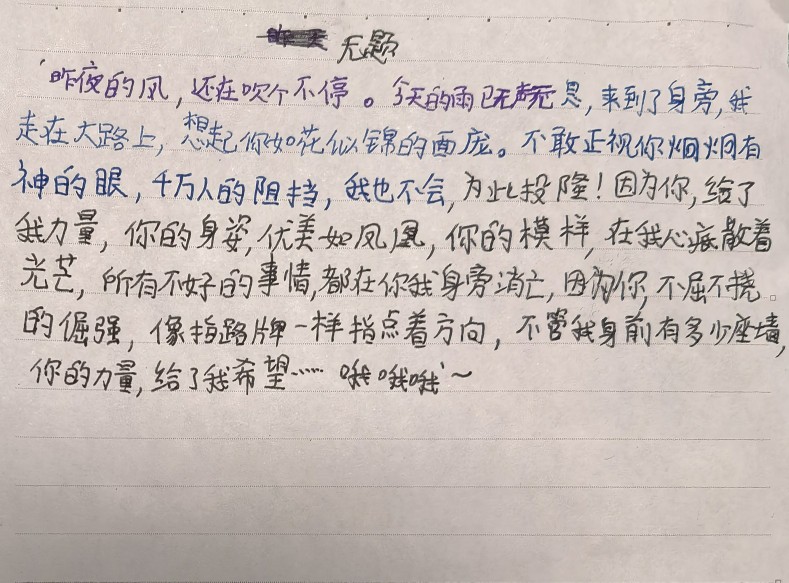 无题
昨夜的风，还在吹个不停。今天的雨已无声无息，来到了身旁，我
走在大路上，想起你如花似锦的面庞。不敢正视你炯炯有
神的眼，千万人的阻挡，我也不会，为此投降！因为你，给了
我力量，你的身姿，优美如凤凰，你的模样，在我心底散着
光芒，所有不好的事情，都在你我身旁消亡，因为你，不屈不挠
的倔强，像指路牌一样指点着方向，不管我身前有多少座墙，
你的力量，给了我希望…… 哦哦哦~